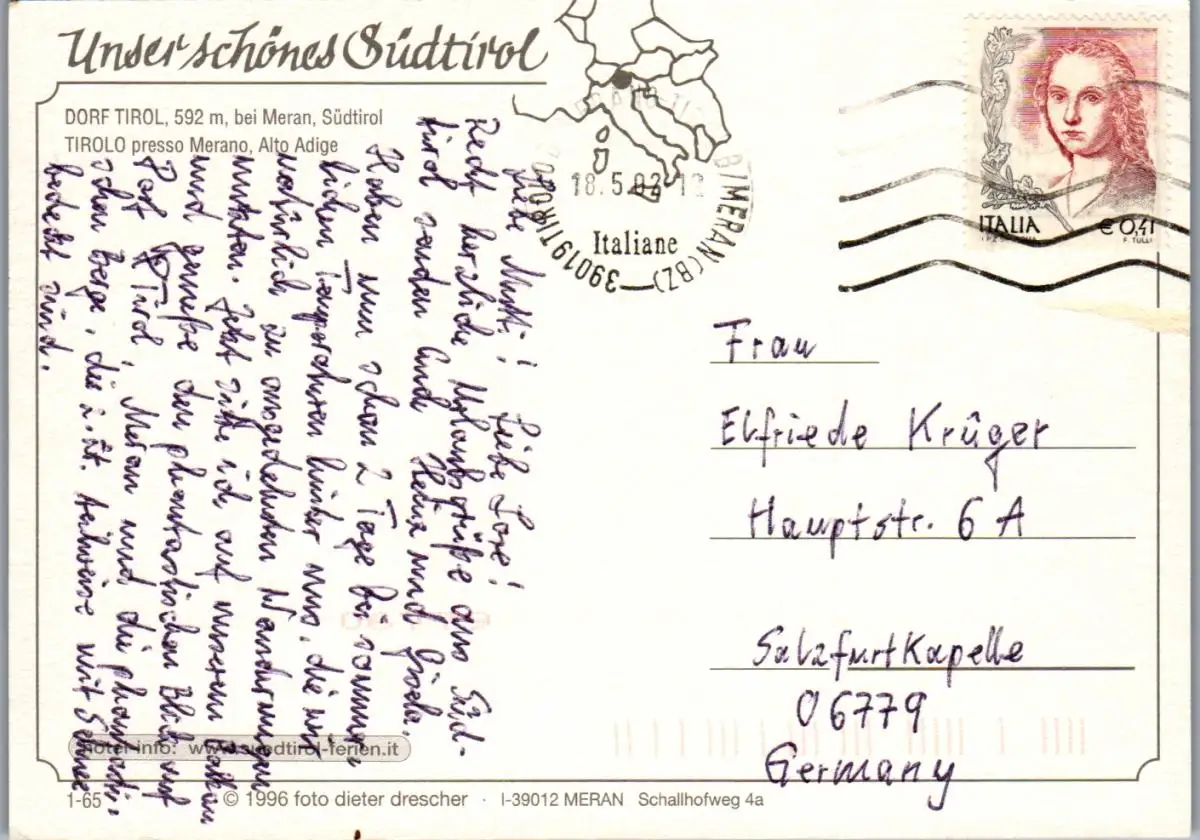 Unser schönes Südtirol
DORF TIROL, 592 m, bei Meran, Südtirol
TIROLO presso Merano, Alto Adige
Liebe Mutti! Liebe Lore!
Recht herzliche Urlaubsgrüße aus Süd-
tirol senden Euch Heinz und Gisela.
Haben nun schon 2 Tage bei sommer-
lichen Temperaturen hinter uns, die wir
natürlich zu ausgedehnten Wanderungen
nutzten. Jetzt sitze ich auf unserem Balkon
und genieße den phantastischen Blick auf
Dorf Tirol, Meran und die phantasti-
schen Berge, die z. Zt. teilweise mit Schnee
bedeckt sind.
18.5.03
Italiane
39019 TIROLO
MERAN (BZ)
ITALIA
€ 0,41
F. TULLI
Frau
Elfriede Krüger
Hauptstr. 6 A
Salzfurtkapelle
06779
Germany
hotel-info: www.suedtirol-ferien.it
1-65
© 1996 foto dieter drescher · I-39012 MERAN Schallhofweg 4a